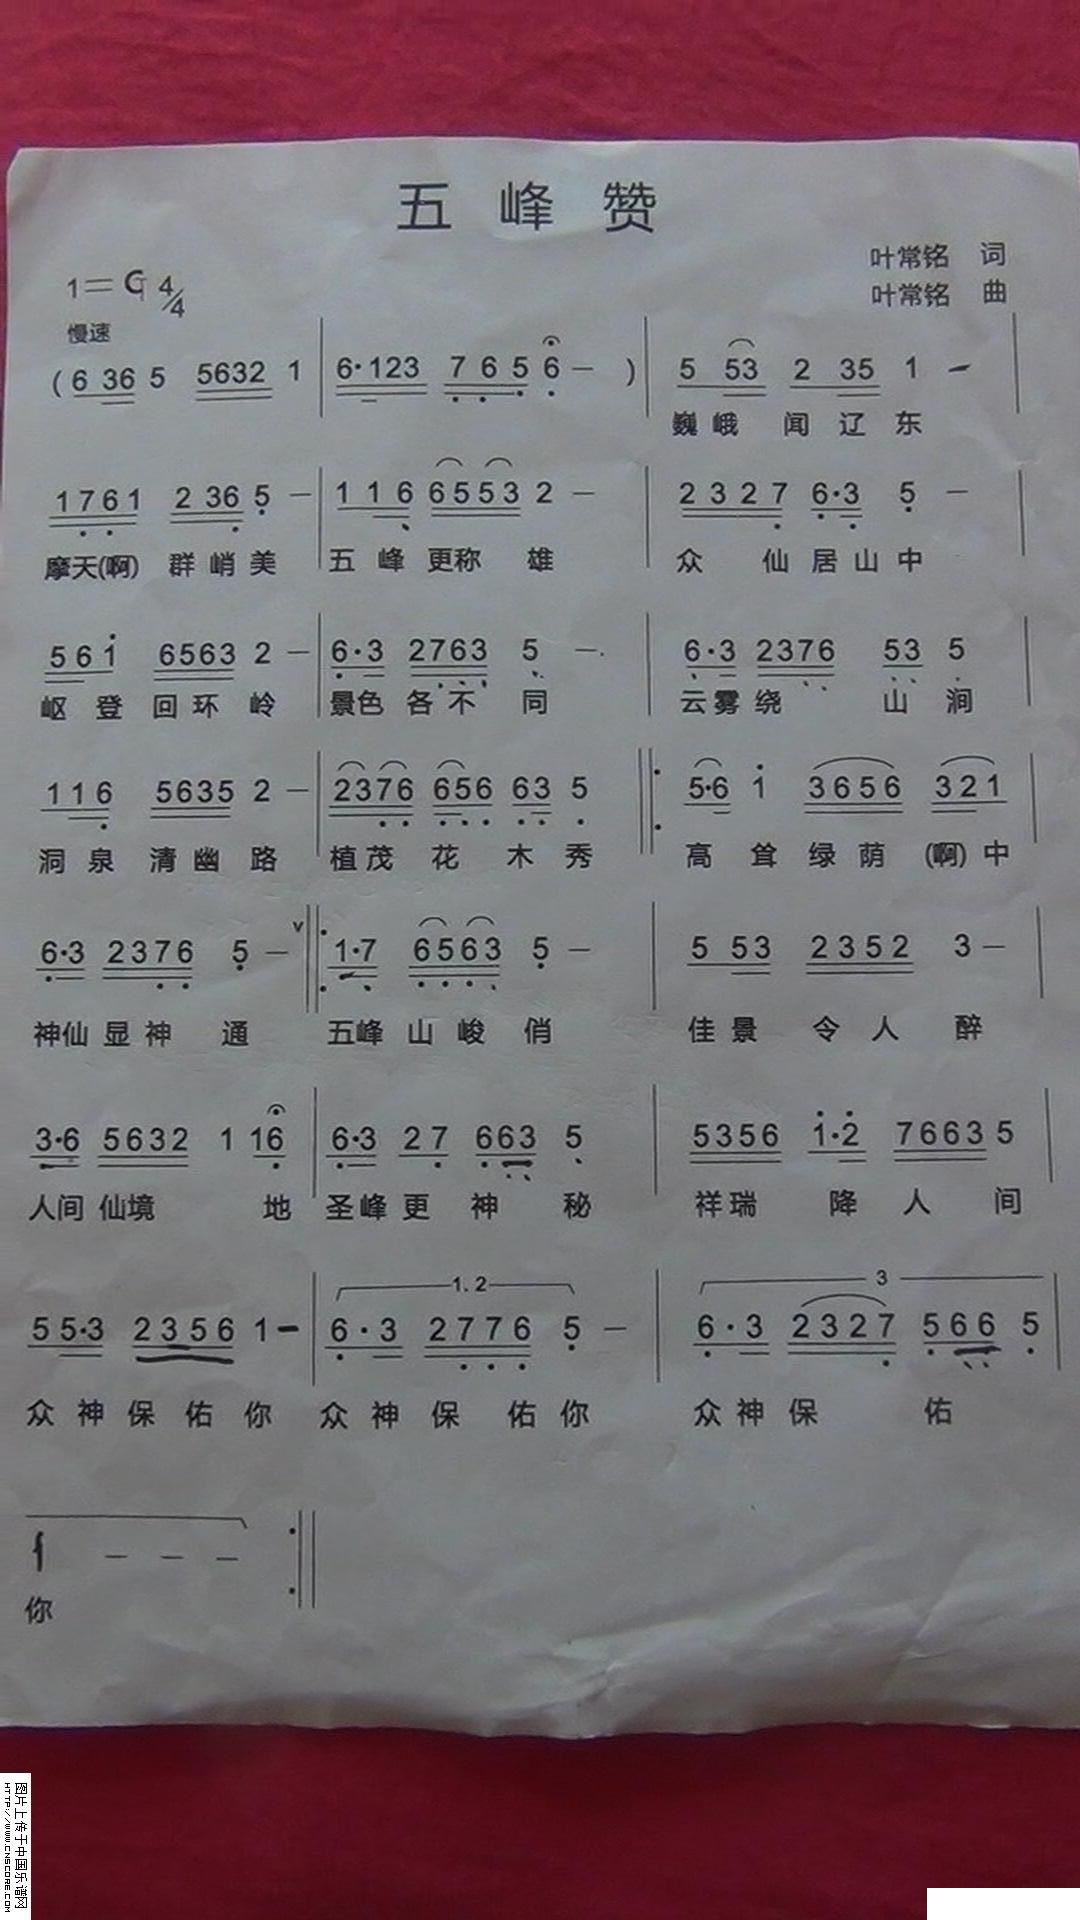 五 峰 赞
叶常铭 词
1= G 4/4
叶常铭 曲
慢速
( 6 36 5 5632 1 | 6·123 7 6 5 6 — ) | 5 53 2 35 1 — |
巍 峨 闻 辽 东
1761 2 36 5 — | 1 1 6 6553 2 — | 2327 6·3 5 — |
摩天(啊) 群 峭 美 五 峰 更称 雄 众 仙 居 山 中
5 6 1 6563 2 — | 6·3 2763 5 — | 6·3 2376 53 5 |
岖 登 回 环 岭 景色 各 不 同 云 雾 绕 山 涧
1 1 6 5635 2 — | 2376 656 63 5 ‖: 5·6 1 3656 321 |
洞 泉 清 幽 路 植 茂 花 木 秀 高 耸 绿 荫 (啊) 中
6·3 2376 5 — v ‖: 1·7 6563 5 — | 5 53 2352 3 — |
神仙 显 神 通 五峰 山 峻 俏 佳 景 令 人 醉
3·6 5632 1 16 | 6·3 27 663 5 | 5356 1·2 7663 5 |
人间 仙境 地 圣峰 更 神 秘 祥瑞 降 人 间
1. 2 3
5 5·3 2356 1 — | 6·3 2776 5 — | 6·3 2327 566 5 |
众 神 保 佑 你 众 神 保 佑 你 众 神 保 佑
1 — — — :‖
你
图片上传于中国乐谱网
HTTP://WWW.CNSCORE.COM